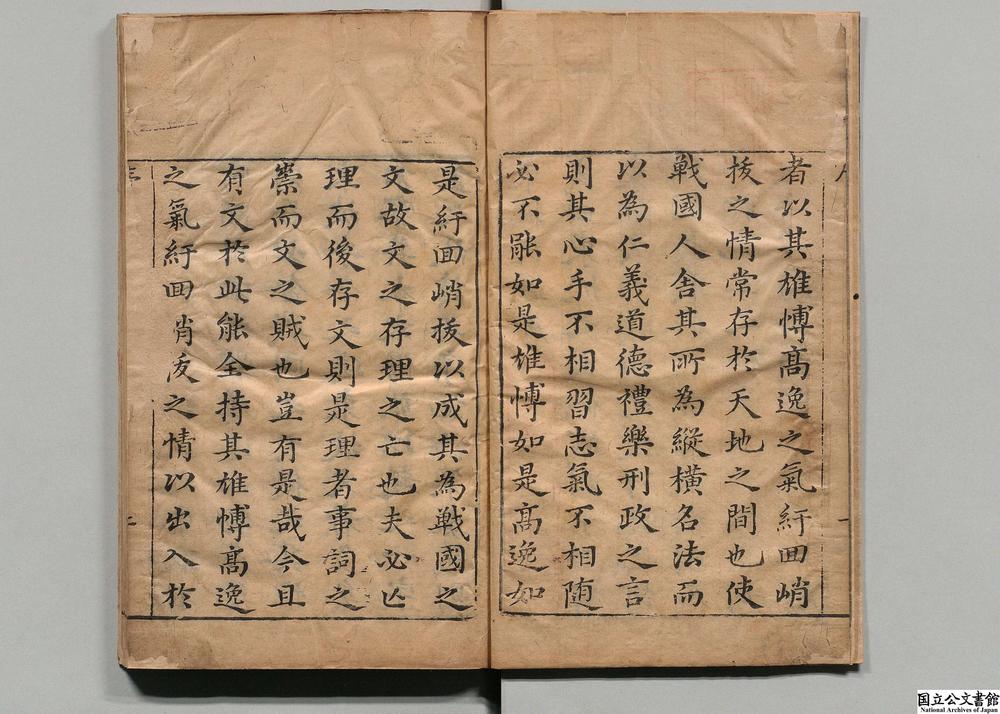 者以其雄愽髙逸之氣紆回峭
拔之情常存於天地之間也使
戰國人舎其所為縱橫名法而
以為仁義道德禮樂刑政之言
則其心手不相習志氣不相随
必不能如是雄愽如是髙逸如
是紆回峭拔以成其為戰國之
文故文之存理之亡也夫必亡
理而後存文則是理者事詞之
祟而文之賊也豈有是哉今且
有文於此能全持其雄愽髙逸
之氣紆回肖犮之情以出入於
国立公文書館
National Archives of Japan